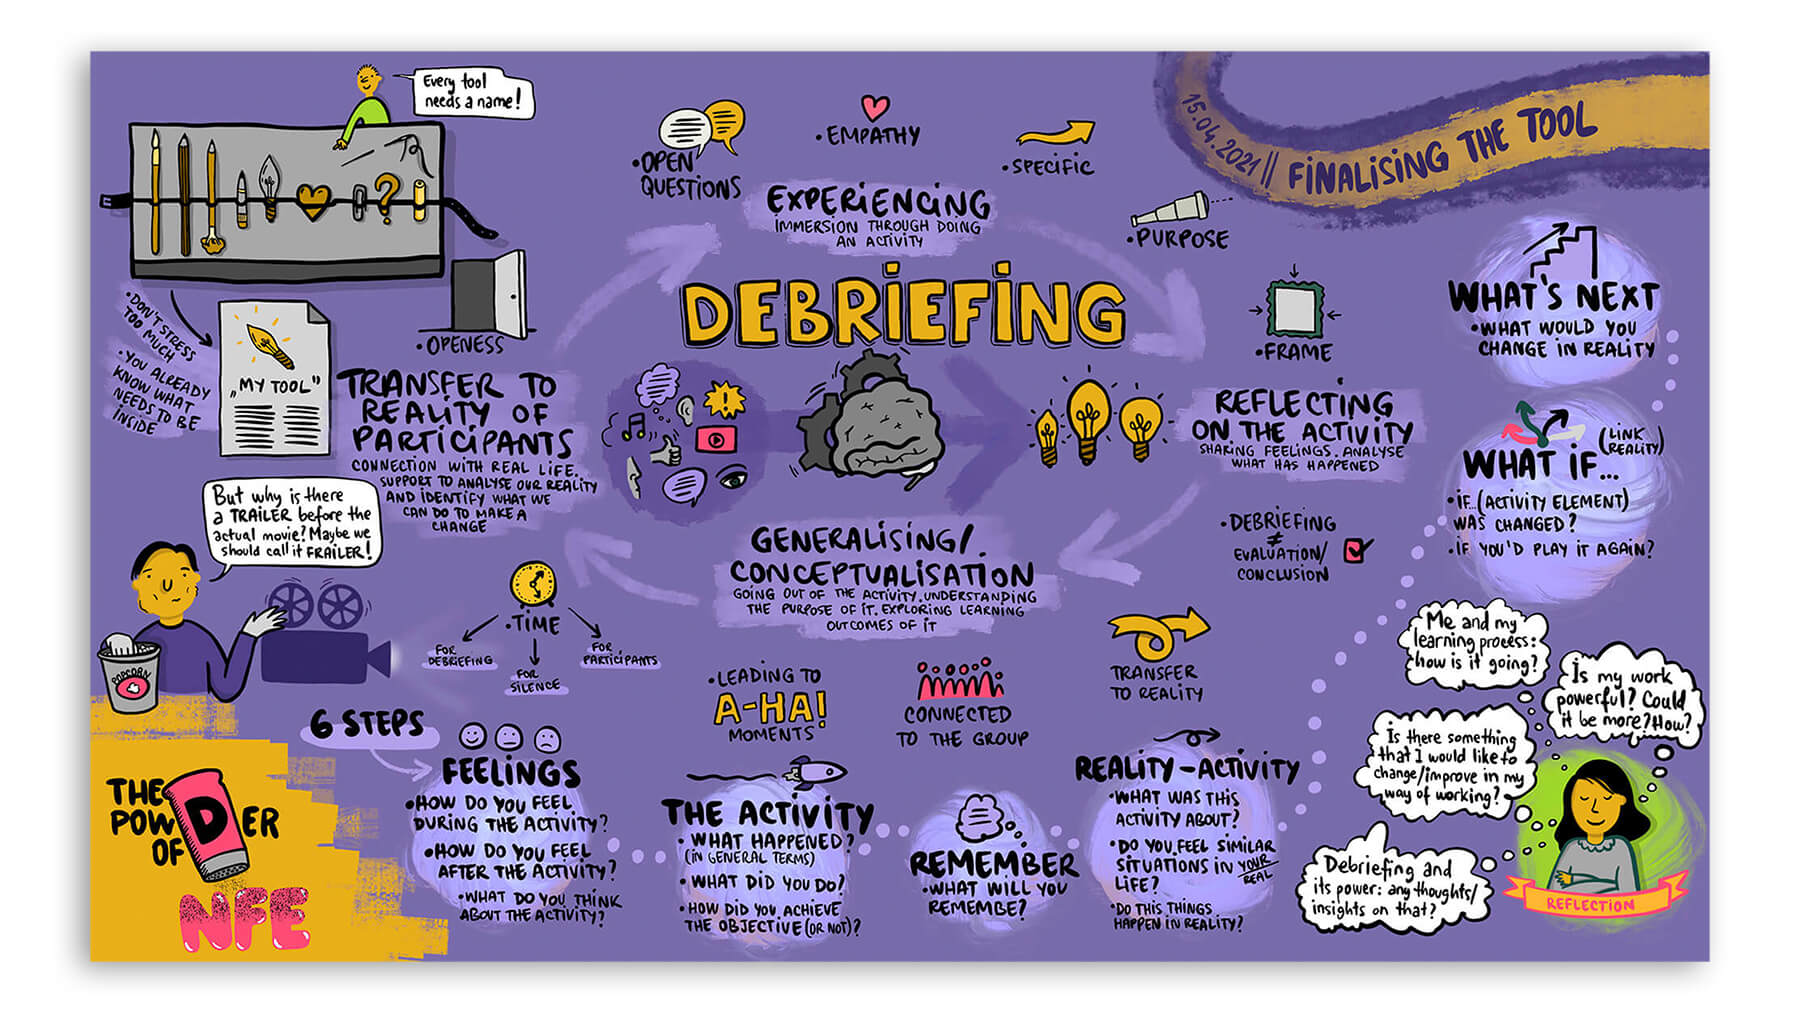 Every tool
needs a name!
15.04.2021 || FINALISING THE TOOL
• OPEN
QUESTIONS
• EMPATHY
• SPECIFIC
• PURPOSE
EXPERIENCING
IMMERSION THROUGH DOING
AN ACTIVITY
DEBRIEFING
• OPENESS
• FRAME
• DON'T STRESS
TOO MUCH
• YOU ALREADY
KNOW WHAT
NEEDS TO BE
INSIDE
„MY TOOL"
TRANSFER TO
REALITY OF
PARTICIPANTS
CONNECTION WITH REAL LIFE.
SUPPORT TO ANALYSE OUR REALITY
AND IDENTIFY WHAT WE
CAN DO TO MAKE A
CHANGE
REFLECTING
ON THE ACTIVITY
SHARING FEELINGS. ANALYSE
WHAT HAS HAPPENED
WHAT'S NEXT
• WHAT WOULD YOU
CHANGE IN REALITY
(LINK
REALITY)
WHAT IF...
• IF...(ACTIVITY ELEMENT)
WAS CHANGED?
• IF YOU'D PLAY IT AGAIN?
But why is there
a TRAILER before the
actual movie? Maybe we
should call it FRAILER!
POPCORN
GENERALISING/
CONCEPTUALISATION
GOING OUT OF THE ACTIVITY. UNDERSTANDING
THE PURPOSE OF IT. EXPLORING LEARNING
OUTCOMES OF IT
• DEBRIEFING
≠
EVALUATION/
CONCLUSION
• TIME
FOR
DEBRIEFING
FOR
SILENCE
FOR
PARTICIPANTS
• LEADING TO
A-HA!
MOMENTS
CONNECTED
TO THE GROUP
TRANSFER
TO REALITY
6 STEPS
FEELINGS
• HOW DO YOU FEEL
DURING THE ACTIVITY?
• HOW DO YOU FEEL
AFTER THE ACTIVITY?
• WHAT DO YOU THINK
ABOUT THE ACTIVITY?
THE ACTIVITY
• WHAT HAPPENED?
(IN GENERAL TERMS)
• WHAT DID YOU DO?
• HOW DID YOU ACHIEVE
THE OBJECTIVE (OR NOT)?
REMEMBER
• WHAT WILL YOU
REMEMBE?
REALITY-ACTIVITY
• WHAT WAS THIS
ACTIVITY ABOUT?
• DO YOU FEEL SIMILAR
SITUATIONS IN YOUR
REAL
LIFE?
• DO THIS THINGS
HAPPEN IN REALITY?
Me and my
learning process:
how is it going?
Is my work
powerful? Could
it be more? How?
Is there something
that I would like to
change/improve in my
way of working?
Debriefing and
its power: any thoughts/
insights on that?
REFLECTION
THE
POWDER
OF
NFE